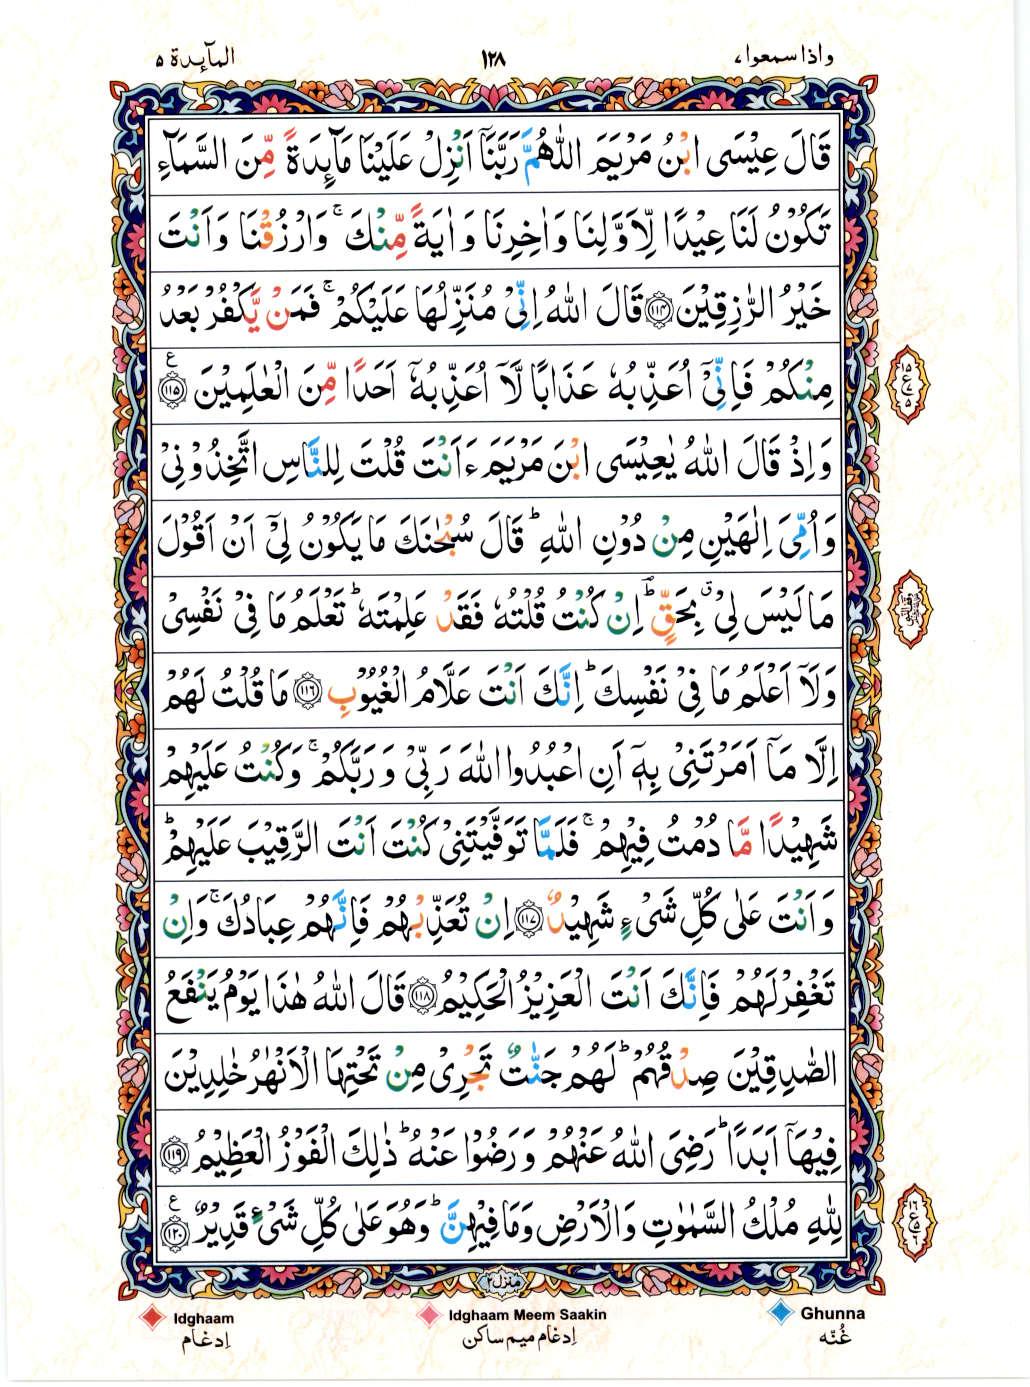 واذا سمعوا،
١٢٨
المآئدة ۵
قَالَ عِيْسَى ابْنُ مَرْيَمَ اللّٰهُمَّ رَبَّنَآ اَنْزِلْ عَلَيْنَا مَآئِدَةً مِّنَ السَّمَآءِ
تَكُوْنُ لَنَا عِيْدًا لِّاَوَّلِنَا وَاٰخِرِنَا وَاٰيَةً مِّنْكَ ۚ وَارْزُقْنَا وَاَنْتَ
خَيْرُ الرّٰزِقِيْنَ ﴿۱۱۴﴾ قَالَ اللّٰهُ اِنِّيْ مُنَزِّلُهَا عَلَيْكُمْ ۚ فَمَنْ يَّكْفُرْ بَعْدُ
مِنْكُمْ فَاِنِّيْٓ اُعَذِّبُهٗ عَذَابًا لَّآ اُعَذِّبُهٗٓ اَحَدًا مِّنَ الْعٰلَمِيْنَ ﴿۱۱۵﴾ ع
وَاِذْ قَالَ اللّٰهُ يٰعِيْسَى ابْنَ مَرْيَمَ ءَاَنْتَ قُلْتَ لِلنَّاسِ اتَّخِذُوْنِيْ
وَاُمِّيَ اِلٰهَيْنِ مِنْ دُوْنِ اللّٰهِ ؕ قَالَ سُبْحٰنَكَ مَا يَكُوْنُ لِيْٓ اَنْ اَقُوْلَ
مَا لَيْسَ لِيْ ۗ بِحَقٍّ ؕ اِنْ كُنْتُ قُلْتُهٗ فَقَدْ عَلِمْتَهٗ ؕ تَعْلَمُ مَا فِيْ نَفْسِيْ
وَلَآ اَعْلَمُ مَا فِيْ نَفْسِكَ ؕ اِنَّكَ اَنْتَ عَلَّامُ الْغُيُوْبِ ﴿۱۱۶﴾ مَا قُلْتُ لَهُمْ
اِلَّا مَآ اَمَرْتَنِيْ بِهٖٓ اَنِ اعْبُدُوا اللّٰهَ رَبِّيْ وَرَبَّكُمْ ۚ وَكُنْتُ عَلَيْهِمْ
شَهِيْدًا مَّا دُمْتُ فِيْهِمْ ۚ فَلَمَّا تَوَفَّيْتَنِيْ كُنْتَ اَنْتَ الرَّقِيْبَ عَلَيْهِمْ ؕ
وَاَنْتَ عَلٰى كُلِّ شَيْءٍ شَهِيْدٌ ﴿۱۱۷﴾ اِنْ تُعَذِّبْهُمْ فَاِنَّهُمْ عِبَادُكَ ۚ وَاِنْ
تَغْفِرْ لَهُمْ فَاِنَّكَ اَنْتَ الْعَزِيْزُ الْحَكِيْمُ ﴿۱۱۸﴾ قَالَ اللّٰهُ هٰذَا يَوْمُ يَنْفَعُ
الصّٰدِقِيْنَ صِدْقُهُمْ ؕ لَهُمْ جَنّٰتٌ تَجْرِيْ مِنْ تَحْتِهَا الْاَنْهٰرُ خٰلِدِيْنَ
فِيْهَآ اَبَدًا ؕ رَضِيَ اللّٰهُ عَنْهُمْ وَرَضُوْا عَنْهُ ؕ ذٰلِكَ الْفَوْزُ الْعَظِيْمُ ﴿۱۱۹﴾
لِلّٰهِ مُلْكُ السَّمٰوٰتِ وَالْاَرْضِ وَمَا فِيْهِنَّ ؕ وَهُوَ عَلٰى كُلِّ شَيْءٍ قَدِيْرٌ ﴿۱۲۰﴾ ع
منزل ۲
Ghunna
غُنّه
Idghaam Meem Saakin
اِدغام میم ساکن
Idghaam
اِدغام